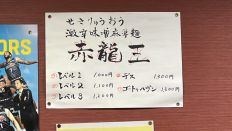 ORS
せきりゅうおう
激辛味噌麻辛麺
赤龍王
レベル1 1,000円
レベル2 1,100円
レベル3 1,200円
デス 1,300円
ゴートゥヘヴン 1,500円